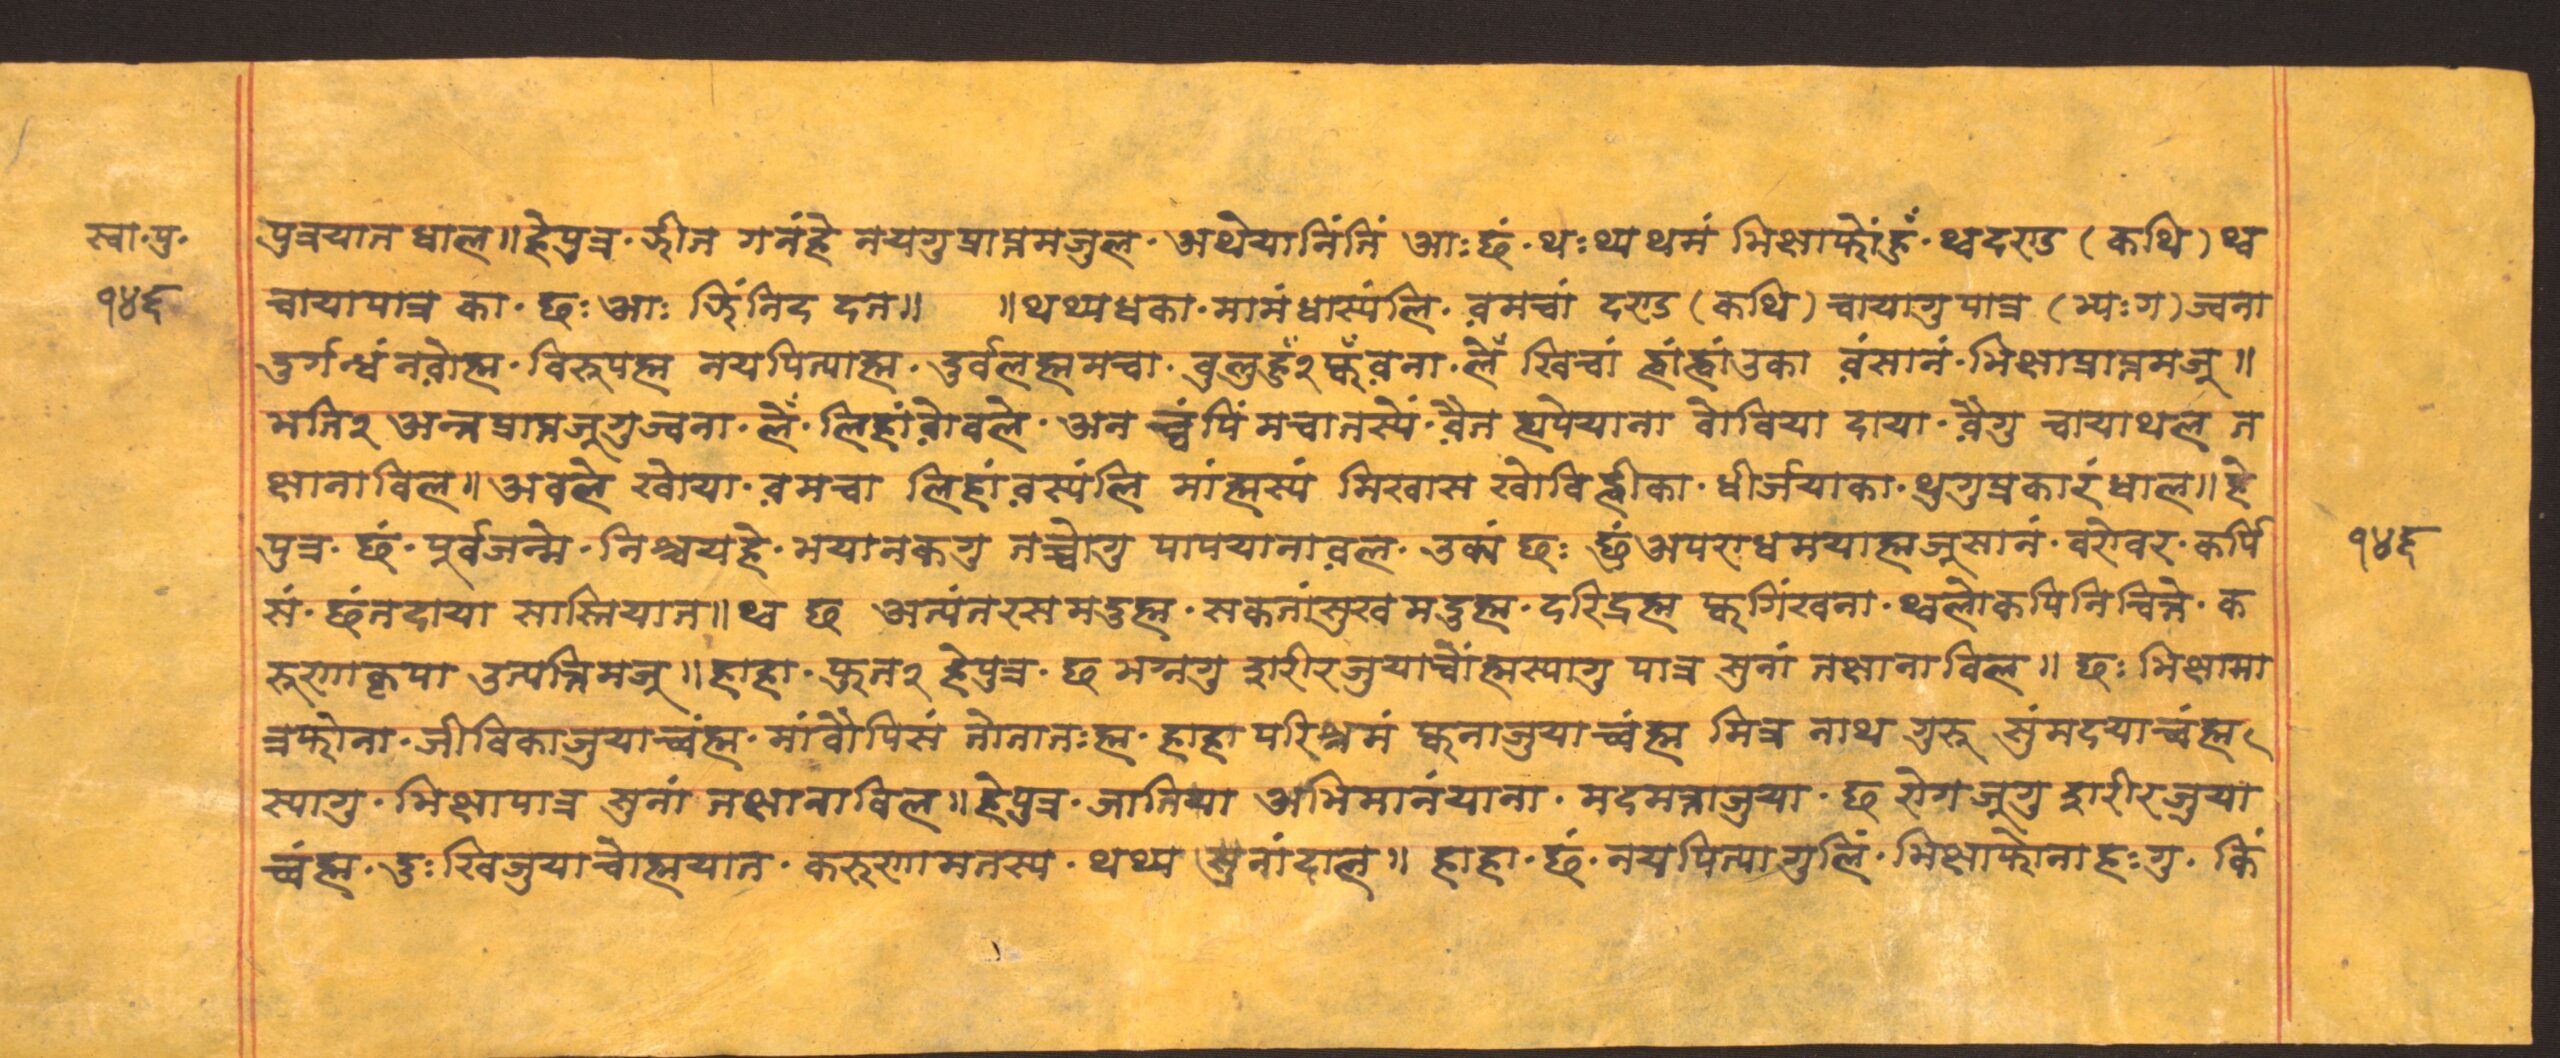 स्वा.पु.
१४६
पुत्रयात धाल॥हेपुत्र.झीत गनंहे नयगुप्राप्तमजुल.अथेयानिंतिं आःछं.थःथ्यथमं भिक्षाफोंहुँ.थ्वदण्ड (कथि) थ्व
चायापात्र का.छःआः झिंनिद दत॥ ॥थथ्यधका.मामंधास्यंलि.व़मचां दण्ड (कथि) चायागुपात्र (भ्यःग) ज्वना
दुर्गन्धं नव़ोह्म.विरूपह्म नयपित्याह्म.दुर्वलह्ममचा.वुलुहुँ२फ्वँव़ना.लँे खिचां ह्वांह्वांउका व़ंसानं.भिक्षाप्राप्तमजू॥
भति२ अन्नप्राप्तजूगुज्वना.लँे.लिहांव़ोवले.अन च्वंपिं मचातस्यें.व़ैत ह्यपेयाना वोविया दाया.व़ैगु चायाथल त
क्षानाविल॥अवले खोया.व़मचा लिहांव़स्यंलि मांह्मस्यं मिखास खोविह्वीका.धीर्जयाका.थुगुप्रकारंधाल॥हे
पुत्र.छं.पूर्वजन्मे.निश्चयहे.भयानकगु तच्वोगु पापयानाव़ल.उकिं छः छुंअपराधमयाह्मजूसानं.वरोवर.कपिं
सं.छंतदाया सास्तियात॥थ्व छ अत्यंतरसमदुह्म.सकतांसुखमदुह्म.दरिद्रह्म फ्वगिंखना.थ्वलोकपिनिचित्ते.क
रूणाकृपा उत्पत्तिमजू॥हाहा.फुत२ हेपुत्र.छ भग्नगु शरीरजुयाच्वोंह्मस्यागु पात्र सुनां तक्षानाविल॥छः भिक्षामा
त्रफोना.जीविकाजुयाच्वंह्म.मांवौपिसं तोतातःह्म.हाहा परिश्रमं फ्वनाजुयाच्वंह्म मित्र नाथ गुरू सुंमदयाच्वंह्म
स्यागु.भिक्षापात्र सुनां तक्षानाविल॥हेपुत्र.जातिया अभिमानंयाना.मदमत्ताजुया.छ रोगजूगु शरीरजुया
च्वंह्म.दुःखिजुयाच्वोह्मयात.करूणामतस्य.थथ्य सुनांदाल॥ हाहा.छं.नयपित्यागुलिं.भिक्षाफोनाहःगु.किं
१४६